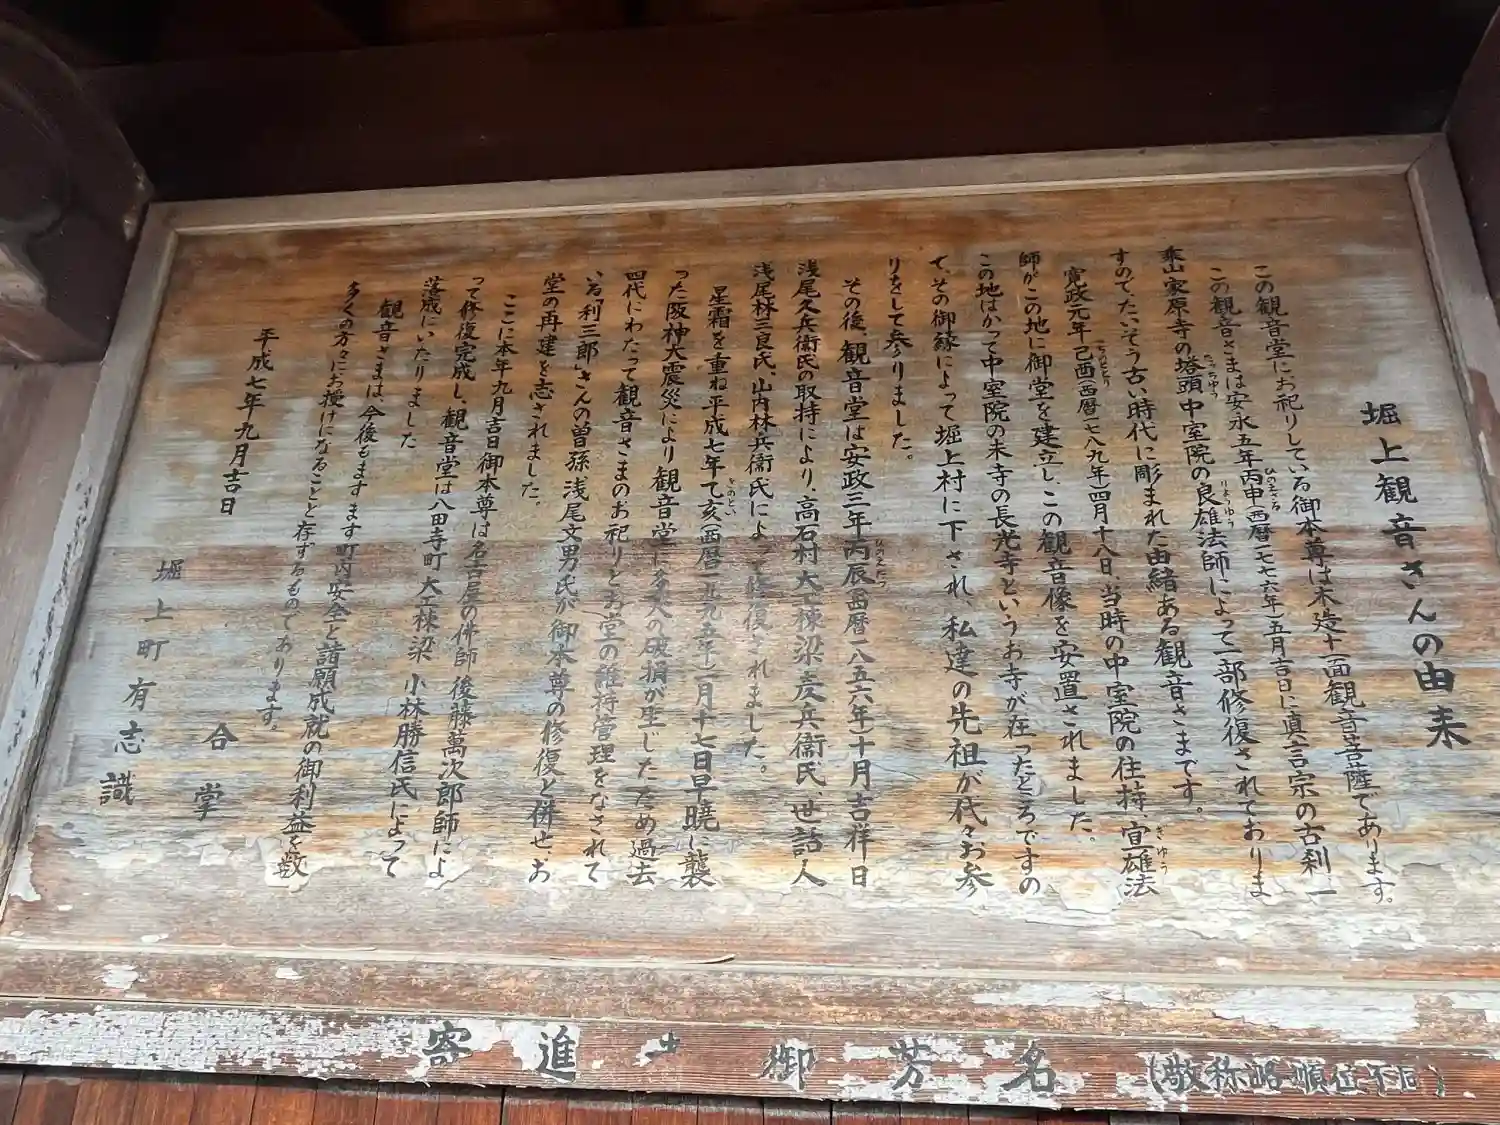 堀上観音さんの由来
この観音堂にお祀りしている御本尊は木造十一面観音菩薩であります。
この観音さまは安永五年丙申(西暦一七七六年)五月吉日に真言宗の古刹一
ひのえさる
乗山家原寺の塔頭中室院の良雄法師によって一部修復されておりま
たっちゅう
りょうゆう
すので、たいそう古い時代に彫まれた由緒ある観音さまです。
寛政元年己酉(西暦一七八九年)四月十八日、当時の中室院の住持、宜雄法
つちのととり
ぎゆう
師がこの地に御堂を建立し、この観音像を安置されました。
この地はかつて中室院の末寺の長光寺というお寺が在ったところですの
で、その御縁によって堀上村に下され、私達の先祖が代々お参
りをして参りました。
その後、観音堂は安政三年丙辰(西暦一八五六年)十月吉祥日
ひのえたつ
浅尾久兵衞氏の取持により、高石村大工棟梁庄兵衞氏、世話人
浅尾林三良氏、山内林兵衞氏によって修復されました。
星霜を重ね平成七年乙亥(西暦一九九五年)一月十七日早曉に襲
きのとい
った阪神大震災により観音堂に多大の破損が生じたため過去
四代にわたって観音さまのお祀りとお堂の維持管理をなされて
いる「利三郎」さんの曽孫浅尾文男氏が御本尊の修復と併せ、お
堂の再建を志されました。
ここに本年九月吉日御本尊は名古屋の佛師 後藤萬次郎師によ
って修復完成し、観音堂は八田寺町大工棟梁 小林勝信氏によって
落成にいたりました
観音さまは、今後もますます町内安全と諸願成就の御利益を数
多くの方々にお授けになることと存ずるものであります。
平成七年九月吉日
合掌
堀上町有志識
寄進士御芳名(敬称略順位不同)